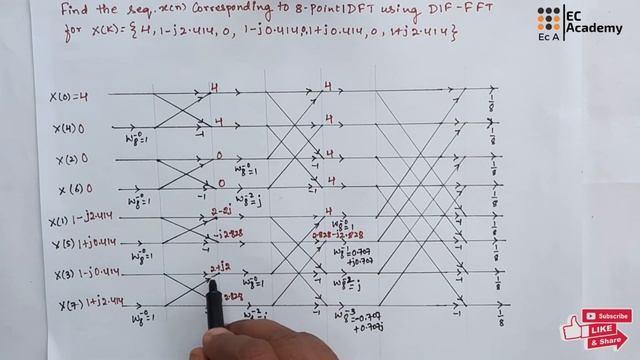 Find the seq. x(n) Corresponding to 8-point IDFT using DIF-FFT
for X(K) = {4, 1-j2.414, 0, 1-j0.414, 0, 1+j0.414, 0, 1+j2.414}
EC
Academy
Ec A
X(0)=4 4 1/8
X(4) 0 W8^-0=1 -1 4 -1 4 1/8
X(2) 0 0 W8^-0=1 -1 4 1/8
X(6) 0 W8^-0=1 -1 0 W8^-2=j -1 4 1/8
X(1) 1-j2.414 2-2j 4 W8^-0=1 -1 1/8
X(5) 1+j0.414 W8^-0=1 -1 -j2.828 2.828-j2.828 W8^-1=0.707+j0.707 -1 1/8
X(3) 1-j0.414 2+j2 W8^-0=1 -1 W8^-2=j -1 1/8
X(7) 1+j2.414 W8^-0=1 2.828 -1 W8^-3=-0.707+0.707j -1 1/8
SUBSCRIBE
LIKE
& Share